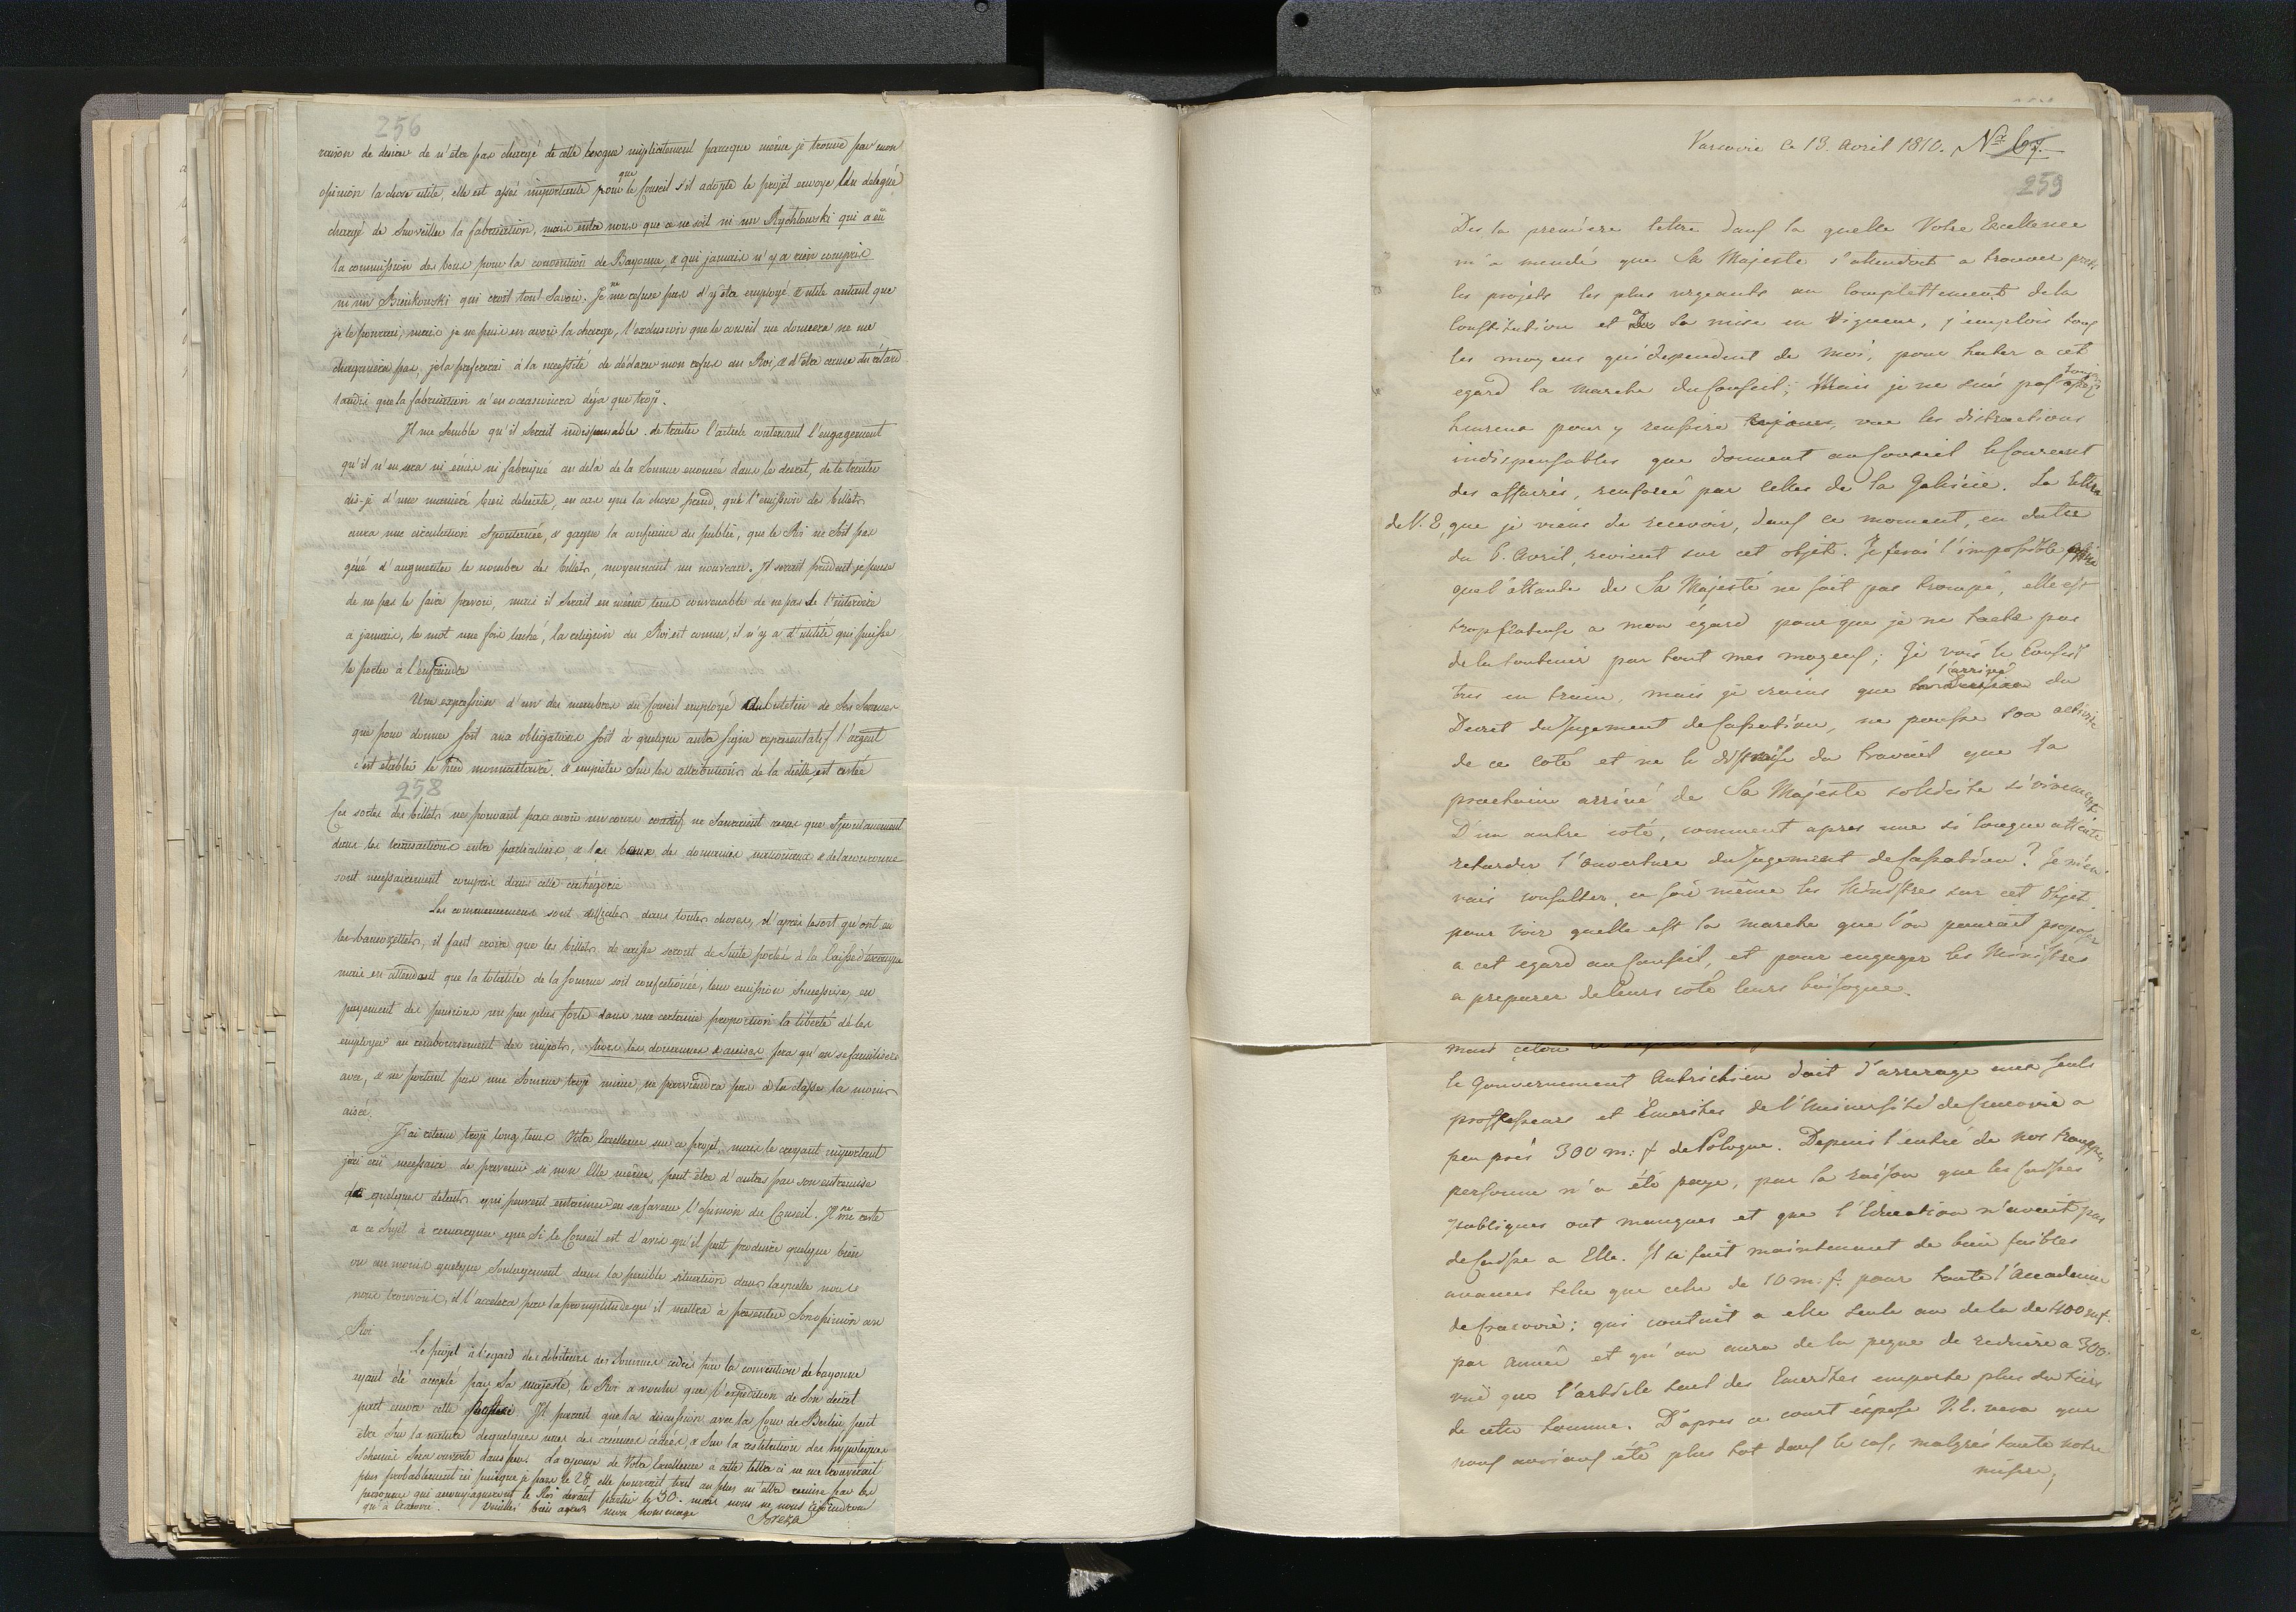 256
raison de desirer de n'etre pas chargé de cette besogne implicitement parceque même je trouve par mon
opinion la chose utile, elle est assés importante pour que le Conseil s'il adopte le projet envoye un delegué
chargé de surveiller la fabrication, mais entre nous que ce ne soit ni un Rychlowski qui a eû
la commission des bons pour la convention de Bayonne, & qui jamais n'y a rien compris
ni un Bienkowski qui croit tout savoir. Je ne me refuse pas d'y etre employé & utile autant que
je le pourrai, mais je ne puis en avoir la charge, l'exclusion que le conseil me donnera ne me
chagrinera pas, je la prefererai à la necessité de déclarer mon refus au Roi, & d'être cause du rétard
tandis que la fabrication n'en occasionnera déja que trop.
Il me semble qu'il serait indispensable de traiter l'article contenant l'engagement
qu'il n'en sera ni émis ni fabriqué au delà de la somme enoncée dans le decret, de le traiter
dis-je d'une maniere bien delicate, en cas que la chose prend, que l'emission des billets
aura une circulation spontanée, & gagne la confiance du public, que le Roi ne soit pas
gêné d'augmenter le nombre des billets, moyennant un nouveau. Il serait prudent je pense
de ne pas le faire prevoir, mais il serait en même tems convenable de ne pas se l'interdire
a jamais, le mot une fois laché, la religion du Roi est connue, il n'y a d'utilité qui puisse
le porter à l'enfreindre
Une expression d'un des membres du Conseil employé au bulletin de ses seances
que pour donner soit aux obligations soit à quelque autre signe representatif l'argent
c'est etablir le pied monnaitaire, & empieter sur les attributions de la diette, est restée
258
Ces sortes des billets ne pouvant pas avoir un cours coactif ne sauraient servir que spontanement
dans les transactions entre particuliers, & les baux des domaines nationaux & de la couronne
sont necessairement compris dans cette cathégorie
Les commencemens sont difficiles dans toutes choses, d'après le sort qu'ont eu
les banconzettels, il faut croire que les billets de caisse seront de suite portés à la Caisse d'echange
mais en attendant que la totalité de la somme soit confectionée, leur emission successive, en
payement des pensions un peu plus fortes dans une certaine proportion la liberté de les
employer au remboursement des impots, hors les douannes & accises fera qu'on se familiarise
avec, & ne portant pas une somme trop minime, ne parviendra pas à la classe la moins
aisée.
J'ai retenu trop long tems Votre Excellence sur ce projet, mais le croyant important
j'ai crû necessaire de prevenir si non Elle même, peut-être d'autres par son entremise
de quelques details qui peuvent entrainer en sa faveur l'opinion du Conseil. Il ne me reste
a ce sujet à remarquer que si le Conseil est d'avis qu'il peut produire quelque bien
ou au moins quelque soulagement dans la penible situation dans laquelle nous
nous trouvons, il l'accelera par la promptitude qu'il mettra à presenter son opinion au
Roi
Le projet à l'egard des debiteurs des sommes cedées par la convention de bayonne
ayant été accepté par Sa majesté, le Roi a voulu que l'expedition de son decret
part encor cette Il parait que la discussion avec la Cour de Berlin peut
être sur la nature de quelques unes des créances cédées, & sur la restitution des hypoteques
sera ouverte dans peu. La reponse de Votre Excellence à cette lettre ci ne me trouverait
plus probablement ici puisque je pars le 28, elle pourrait tout au plus m'etre remise par les
personnes qui accompagneront le Roi devant partir le 30. mais nous ne nous rejoindrons
qu'à Cracovie. Veuilléz bien agreer mon hommage
Breza
Varsovie ce 13. Avril 1810. Nr. 67.
259
Des la première lettre dans la quelle Votre Excellence
m'a mandé que Sa Majesté s'attendoit a trouver prets
les projets les plus urgeants au complettement de la
Constitution et a sa mise en Vigueur, j'emplois tous
les moyens qui dependent de moi, pour hater a cet
egard la marche du Conseil; Mais je ne suis pas toujours
heureux pour y reussire vue les distractions
indispensables que donnent au Conseil le Courrent
des affaires, renforcé par celles de la Galicie. La lettre
de V. E, que je viens de recevoir, dans ce moment, en datte
du 6. Avril, revient sur cet objet. Je ferai l'impossible
que l'attente de Sa Majesté ne soit pas trompé, elle est
trop flateuse a mon égard pour que je ne tache pas
de la soutenir par tout mes moyens; Je vois le Conseil
tres en train, mais je crains que l'arrivé du
Decret du Jugement de Cassation, ne pousse son activité
de ce coté et ne le distraise du travail que la
prochaine arrivé de Sa Majesté sollicite si vivement
D'un autre coté, comment apres une si longue attente
retarder l'ouverture du Jugement de Cassation? Je m'en
vais consulter, ce soir même les Ministres sur cet Objet,
pour voir quelle est la marche que l'on pourait proposer
a cet egard au Conseil, et pour engager les Ministres
a preparer de leurs coté leurs boisogne.
le Gouvernement Autrichien doit d'arrerage aux seuls
proffesseurs et Emerites de l'Université de Cracovie a
peu près 300 m: f de Pologne. Depuis l'entré de nos trouppes
personne n'a été payé, par la raison que les Caisses
publiques ont manqués et que l'Education n'avait pas
de Caisse a Elle. Il se fait maintenant de bien faibles
avances telle que celle de 10 m: f. pour toute l'Accademie
de Cracovie; qui coutait a elle seule au dela de 400 m f.
par année et qu'on aura de la peyne de reduire a 300.
vuë que l'article seul des Emerites emporte plus du tiers
de cette somme. D'apres ce court éxposé V. E. verra que
nous avions été plus tot dans le cas, malgrés toute notre
misere,